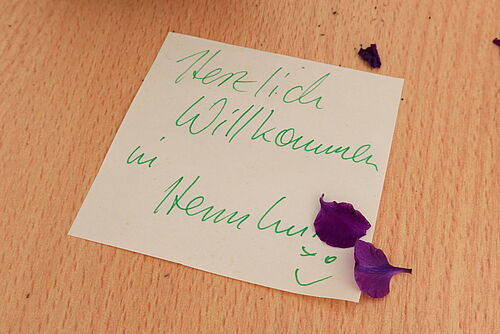 Herzlich
Willkommen
in
Herrnhu